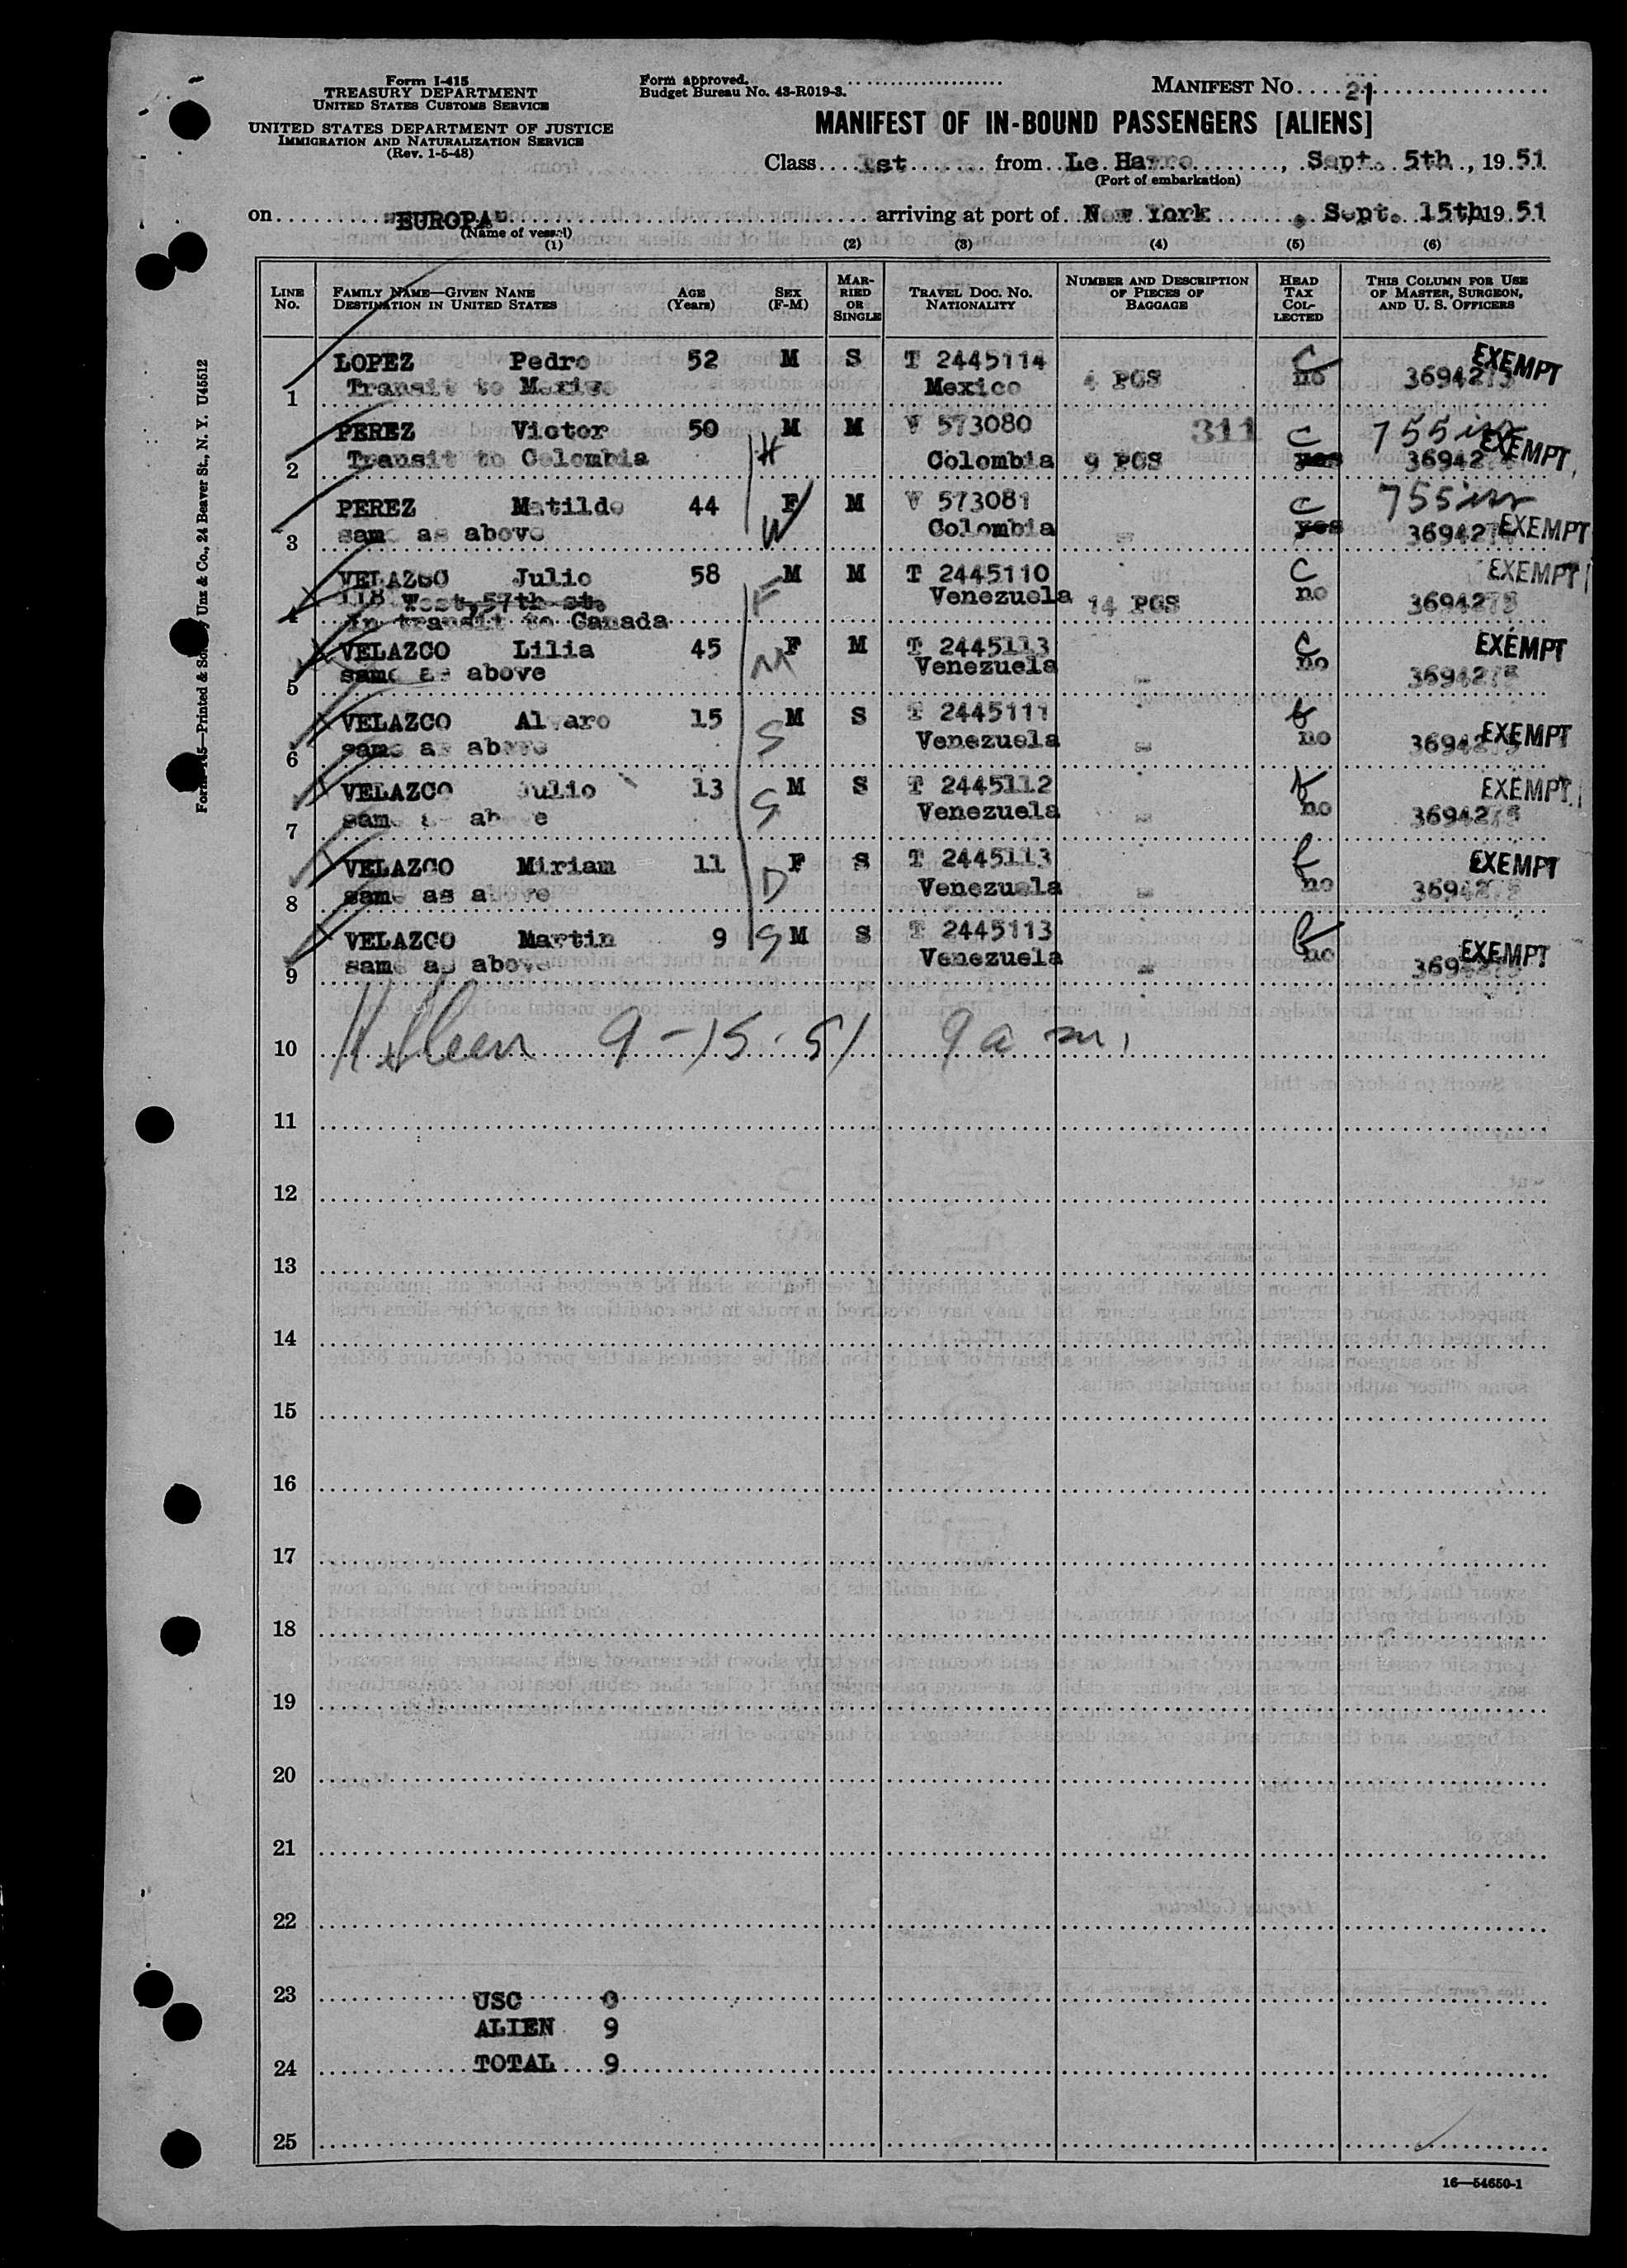 Form I-415
TREASURY DEPARTMENT
UNITED STATES CUSTOMS SERVICE
UNITED STATES DEPARTMENT OF JUSTICE
IMMIGRATION AND NATURALIZATION SERVICE
(Rev. 1-5-48)
Form approved.
Budget Bureau No. 43-R019-3.
MANIFEST NO. 21
MANIFEST OF IN-BOUND PASSENGERS [ALIENS]
Class 1st from Le Havre, Sept. 5th, 19 51
(Port of embarkation)
on "EUROPA" arriving at port of New York, Sept. 15th, 19 51
(Name of vessel)
(1) (2) (3) (4) (5) (6)
LINE NO. FAMILY NAME—GIVEN NAME DESTINATION IN UNITED STATES AGE (Years) SEX (F-M) MARRIED OR SINGLE TRAVEL DOC. NO. NATIONALITY NUMBER AND DESCRIPTION OF PIECES OF BAGGAGE HEAD TAX COLLECTED THIS COLUMN FOR USE OF MASTER, SURGEON, AND U. S. OFFICERS
LOPEZ Pedro 52 M S T 2445114 C EXEMPT
1 Transit to Mexico Mexico 4 PGS no 3694275
PEREZ Victor 50 M M V 573080 311 C 755
2 Transit to Colombia H Colombia 9 PGS yes 36942 EXEMPT
PEREZ Matilde 44 F M V 573081 C 755
3 same as above W Colombia - yes 369427 EXEMPT
VELAZCO Julio 58 M M T 2445110 C EXEMPT
118 West, 57th st. F Venezuela 14 PGS no 3694275
4 In transit to Canada
VELAZCO Lilia 45 F M T 2445113 C EXEMPT
5 same as above M Venezuela - no 3694275
VELAZCO Alvaro 15 M S T 2445111
6 same as above S Venezuela - no 3694275 EXEMPT
VELAZCO Julio 13 M S T 2445112 EXEMPT
7 same as above S Venezuela - no 3694275
VELAZCO Miriam 11 F S T 2445113 EXEMPT
8 same as above D Venezuela - no 3694275
VELAZCO Martin 9 S M S T 2445113
9 same as above Venezuela - no 3694275 EXEMPT
10 9-15-51 9 a m.
11
12
13
14
15
16
17
18
19
20
21
22
23 USC 0
ALIEN 9
24 TOTAL 9
25
16—54650-1
Printed & Unz & Co., 24 Beaver St., N. Y. U45512